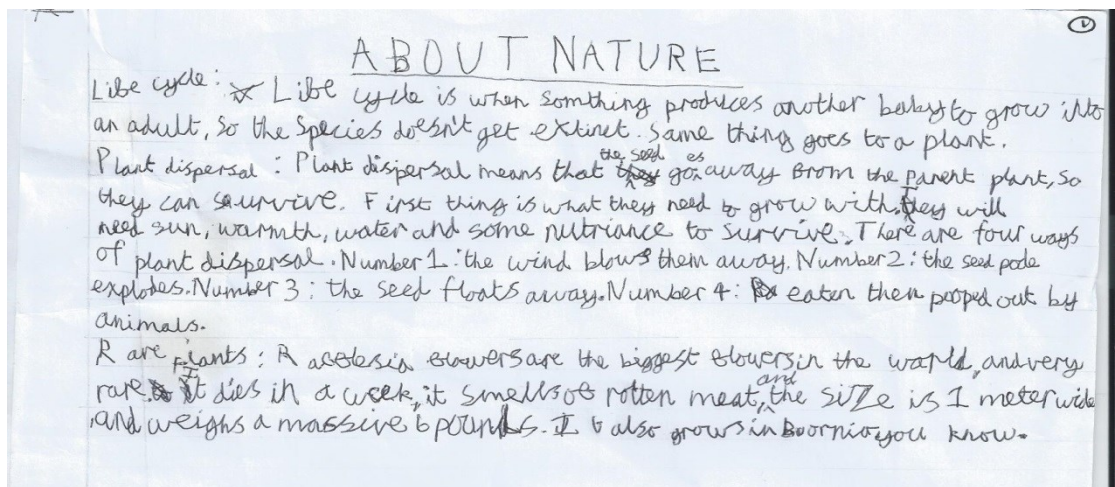 1
ABOUT NATURE
Life cycle: Life cycle is when somthing produces another baby to grow into
an adult, so the species doesn't get extinct. Same thing goes to a plant.
Plant dispersal : Plant dispersal means that the seed goes away from the Parent plant, so
they can survive. First thing is what they need to grow with. They will
need sun, warmth, water and some nutriance to survive. There are four ways
of plant dispersal. Number 1 : the wind blows them away. Number 2 : the seed pode
explodes. Number 3 : the seed floats away. Number 4 : eaten then pooped out by
animals.
Rare Plants : Rafflesia flowers are the biggest flowers in the warld, and very
rare. It dies in a week, it smells of rotten meat, and the siZe is 1 meter wide
and weighs a massive 6 pounds. It also grows in Boornio you know.